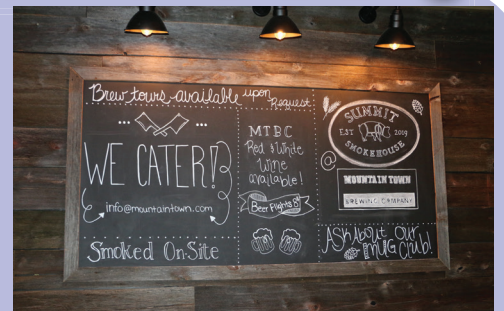 Brew tours available upon
Request
WE CATER!
info@mountaintown.com
Smoked On-Site
MTBC
Red & White
Wine
available!
Beer Flights
SUMMIT
EST 2019
SMOKEHOUSE
@
MOUNTAIN TOWN
BREWING COMPANY
Ask About our
MUG Club!